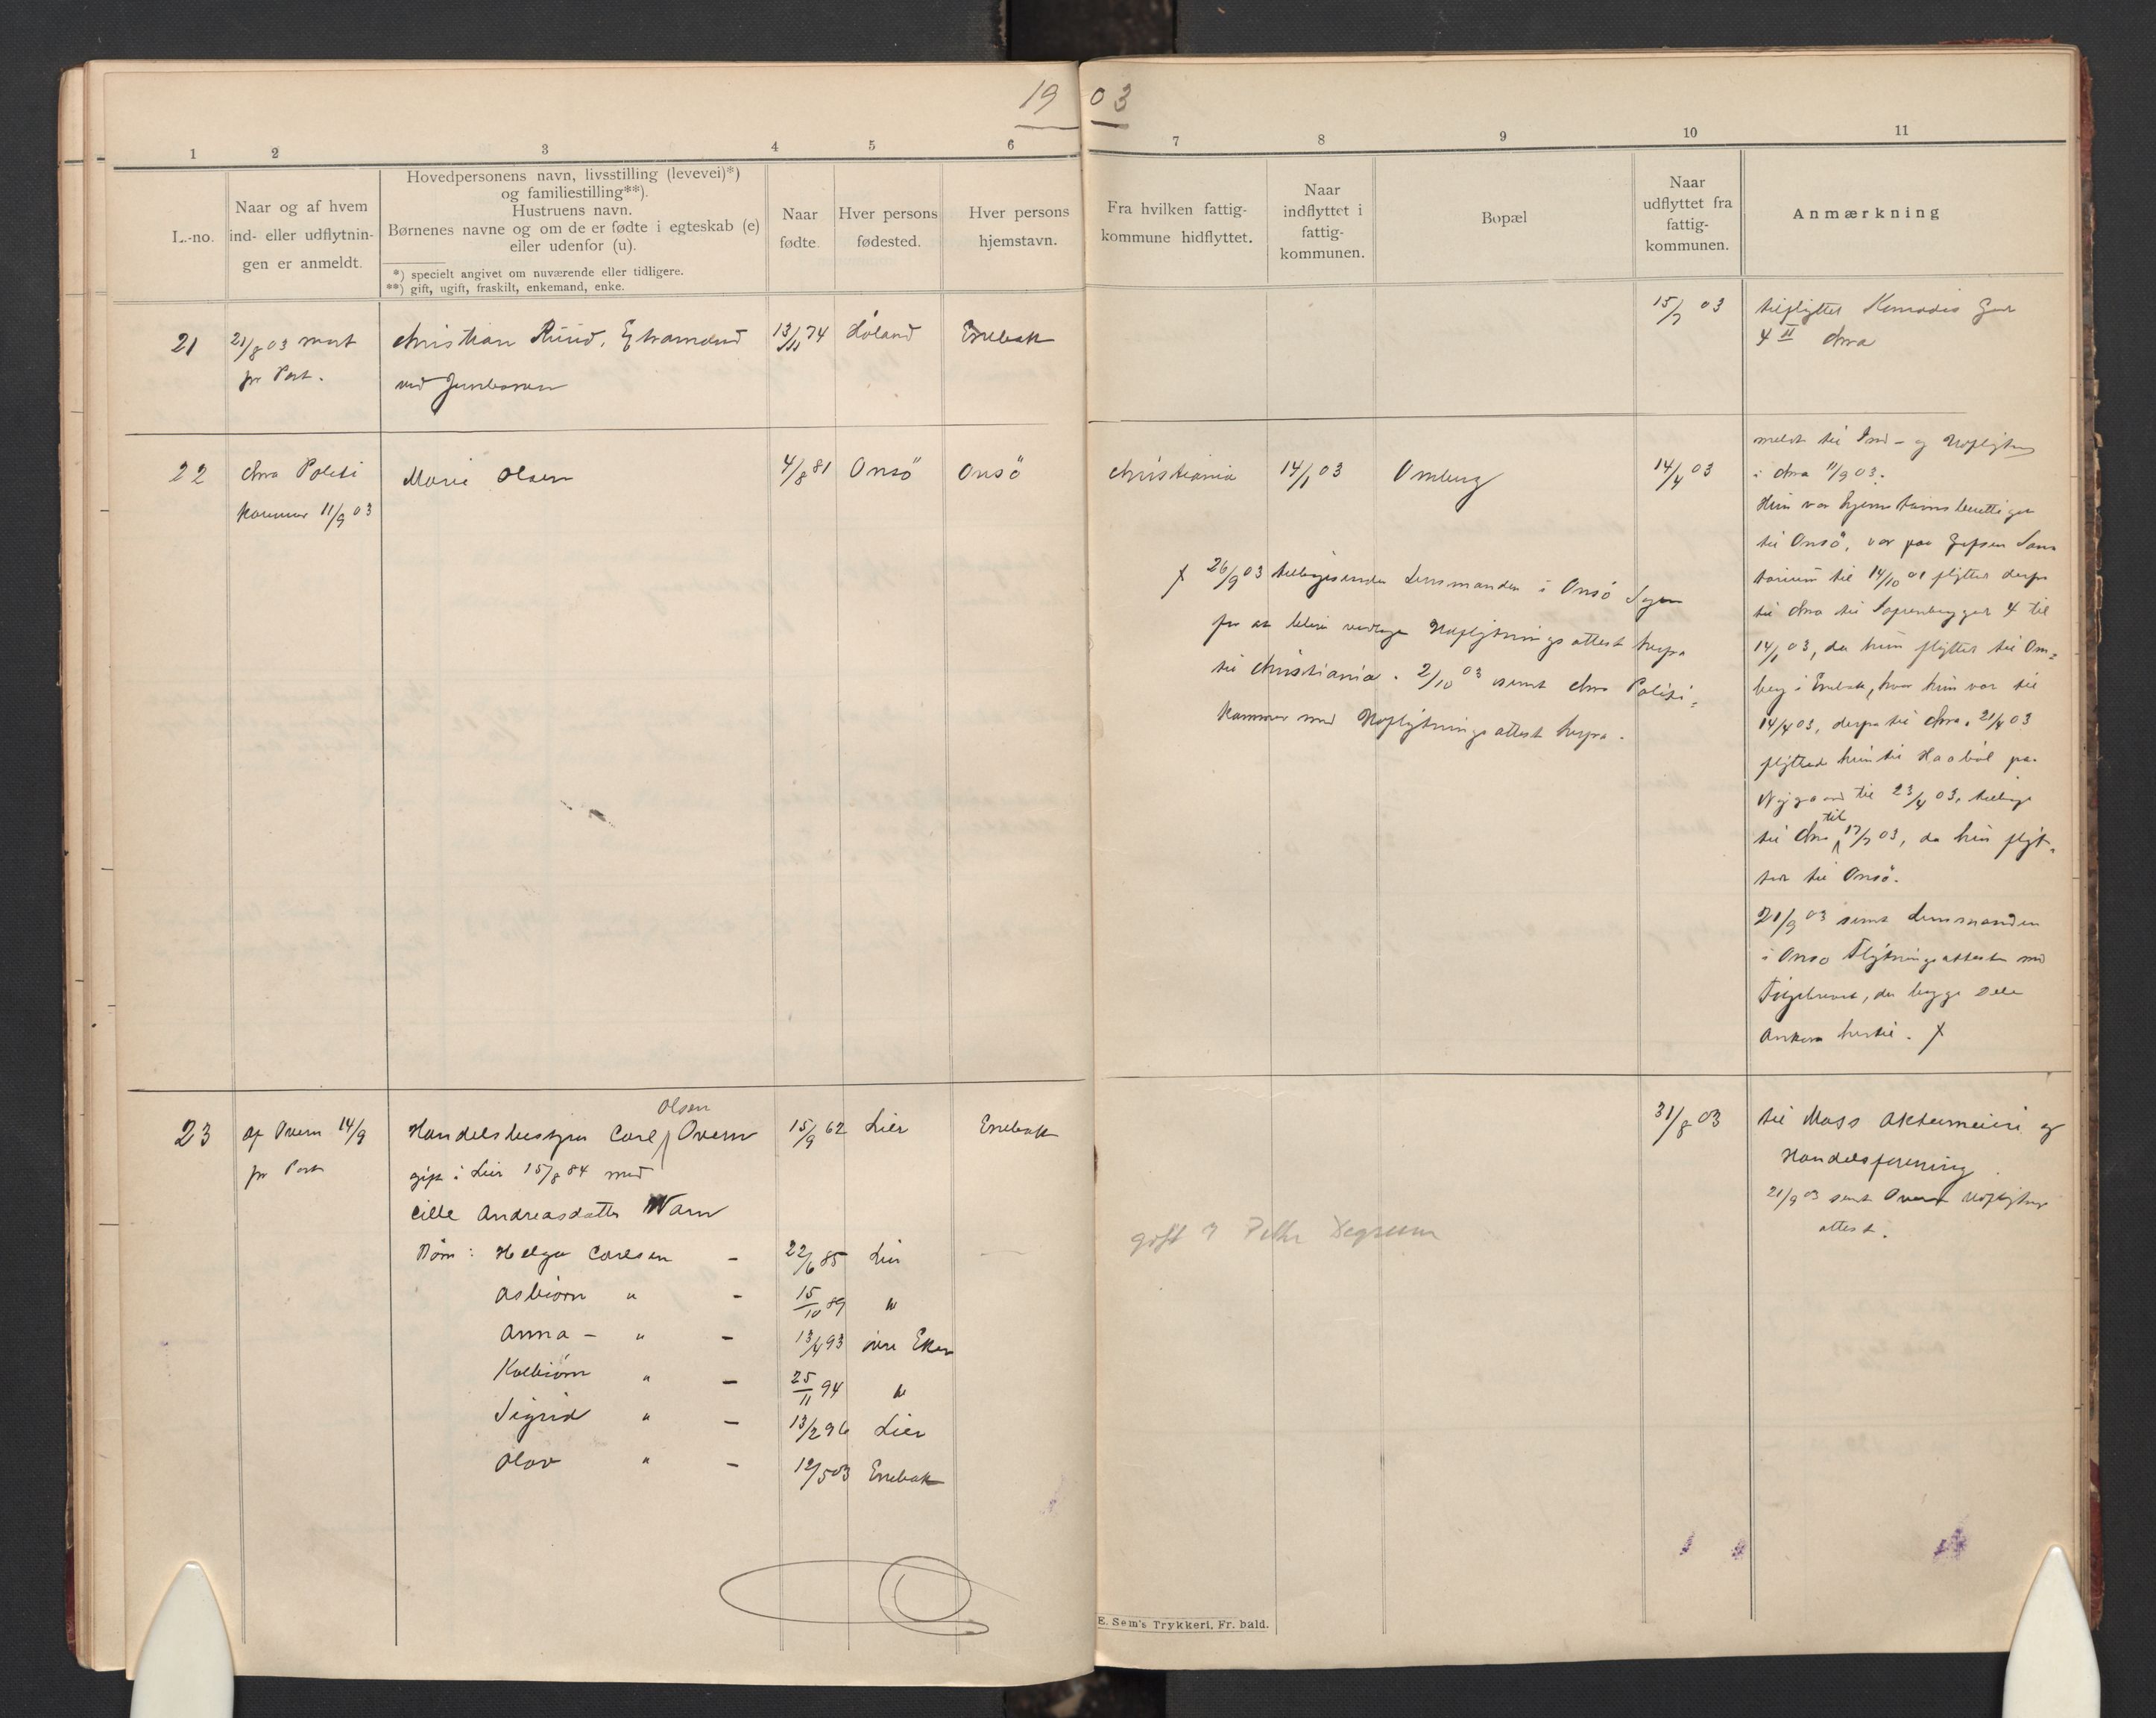 19 03
1 2 3 4 5 6 7 8 9 10 11
L.-no.
Naar og af hvem
ind- eller udflytnin-
gen er anmeldt.
Hovedpersonens navn, livsstilling (levevei)*)
og familiestilling**).
Hustruens navn.
Børnenes navne og om de er fødte i egteskab (e)
eller udenfor (u).
*) specielt angivet om nuværende eller tidligere.
**) gift, ugift, fraskilt, enkemand, enke.
Naar
fødte.
Hver persons
fødested.
Hver persons
hjemstavn.
Fra hvilken fattig-
kommune hidflyttet.
Naar
indflyttet i
fattig-
kommunen.
Bopæl
Naar
udflyttet fra
fattig-
kommunen.
Anmærkning
21
21/8 03
pr Post.
Christian Ruud,
ved Jernbanen
13/11 74
Høland
Enebak
15/7 03
tilflyttet Gad
4 II Chra
22
Chra Politi
kammer 11/9 03
Marie Olsen
4/8 81
Onsö
Onsö
Christiania
14/1 03
Omberg
14/4 03
meldt til Ind- og Udflytn
i Chra 11/9 03.
Hun var hjemstavnsberettiget
til Onsö, var paa Sana
torium til 14/10 01 flyttet derfra
til Chra til 4 til
14/1 03, da hun flyttet til Om=
berg i Enebak, hvor hun var til
14/4 03, derfra til Chra. 21/4 03
flyttede hun til Haabøl paa
Nygaard til 23/4 03, tilbage
til Chra til 17/7 03, da hun flyt=
tet til Onsö.
21/9 03 sendt Lensmanden
i Onsö Flytningsattesten med
Følgebrevet, da begge Dele
Ankom hertil. X
X 26/9 03 tilbagesender Lensmanden i Onsö Sagen
for at blive vedlagt Udflytningsattest herfra
til Christiania. 2/10 03 sendt Chra Politi=
kammer med Udflytningsattest herfra.
23
af Overn 14/9
pr Post
Handelsbestyrer Carl Olsen Overn
gift i Lier 15/8 84 med
Cille Andreasdatter Warn
Börn: Helga Carlsen -
Asbiörn " -
Anna - " -
Kolbiörn " -
Sigrid " -
Olav " -
15/9 62 Lier Enebak
22/6 85 Lier
15/10 89 "
13/4 93 øvre Eker
25/11 94 "
13/2 96 Lier
12/5 03 Enebak
gift m Petter
31/8 03
til Moss Aktiemeieri og
Handelsforening
21/9 03 sendt Overn Udflytnings
attest.
E. Sem's Trykkeri, Fr.hald.